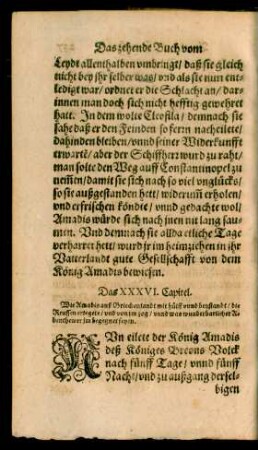 Das zehende Buch vom
Leydt allenthalben vmbringt / daß sie gleich
nicht bey jhr selber was / vnd als sie nun ent-
ledigt war / ordnet er die Schlacht an / dar-
innen man doch sich nicht hefftig gewehret
hatt. In dem wolte Cleofila / demnach sie
sahe daß er den Feinden so fern nacheilete /
dahinden bleiben / vnnd seiner Widerkunfft
erwartẽ / aber der Schiffherr wurd zu raht /
man solte den Weg auff Constantinopel zu
nemen / damit sie sich nach so viel vnglücks /
so sie außgestanden hett / widerum̃ erholen
vnd erfrischen köndte / vnnd gedachte wol /
Amadis würde sich nach jnen nit lang sau-
men. Vnd demnach sie allda etliche Tage
verharret hett / wurd jr im heimziehen in ihr
Vatterlandt gute Gesellschafft von dem
König Amadis bewiesen.
Das XXXVI. Capitel.
Wie Amadis auß Griechenlandt mit hülff vnnd beystandt / die
Reussen erlegete / vnd von im zog / vnnd was wunderbarlicher A-
bentheuer jm begegnet seyen.
NVn eilete der König Amadis
deß Königes Breons Volck
nach fünff Tage / vnnd fünff
Nacht / vnd zu außgang dersel-
bigen